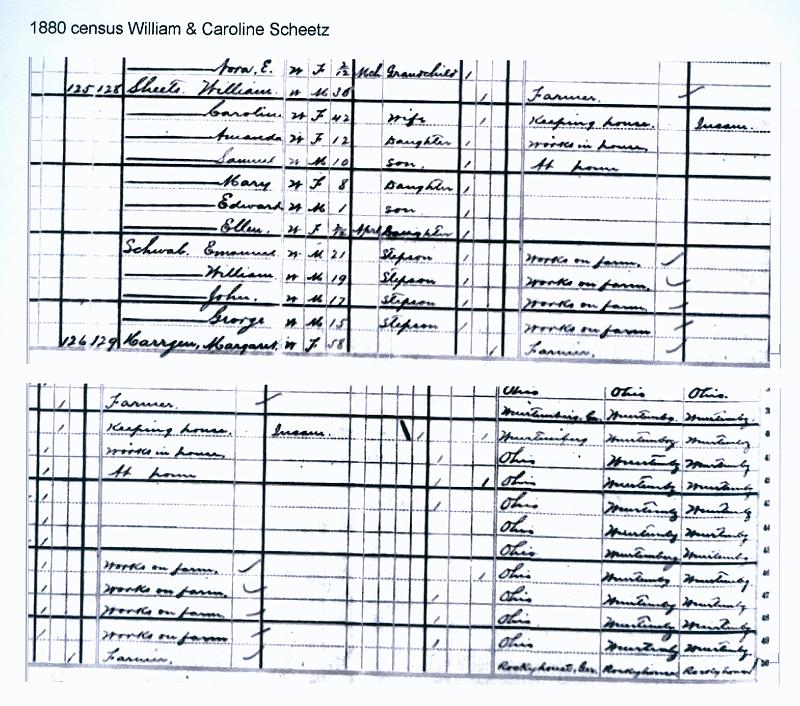 1880 census William & Caroline Scheetz
Nora. E. W F 2/12 Mch Grandchild /
125 128 Sheets. William. W M 36 / Farmer. ✓
Caroline W F 42 Wife / Keeping house. Insane.
Amanda W F 12 Daughter / Works in house
Samuel W M 10 Son. / At home
Mary W F 8 Daughter /
Edward W M 1 Son /
Ellen. W F Aprl Daughter /
Schwab. Emanuel W M 21 Stepson / Works on farm. ✓
William. W M 19 Stepson / Works on farm. ✓
John. W M 17 Stepson / Works on farm. ✓
George W M 15 Stepson / Works on farm ✓
126 129 Margaret. W F 58 / Farmer. ✓
Ohio Ohio Ohio.
/ Farmer. ✓ Wurtemburg, Ger. Wurtembg Wurtembg
/ Keeping house. Insane. \ / / Wurtemburg Wurtembg Wurtembg
/ Works in house / Ohio Wurtembg Wurtembg
/ At home / / Ohio Wurtembg Wurtembg
/ / Ohio Wurtembg Wurtembg
/ Ohio Wurtembg Wurtembg
/ Ohio Wurtemburg Wurtembg
/ Works on farm. ✓ / Ohio Wurtembg Wurtembg
/ Works on farm. ✓ / Ohio Wurtembg Wurtembg
/ Works on farm ✓ / Ohio Wurtembg Wurtembg
/ Works on farm ✓ / Ohio Wurtembg Wurtembg
/ Farmer. ✓